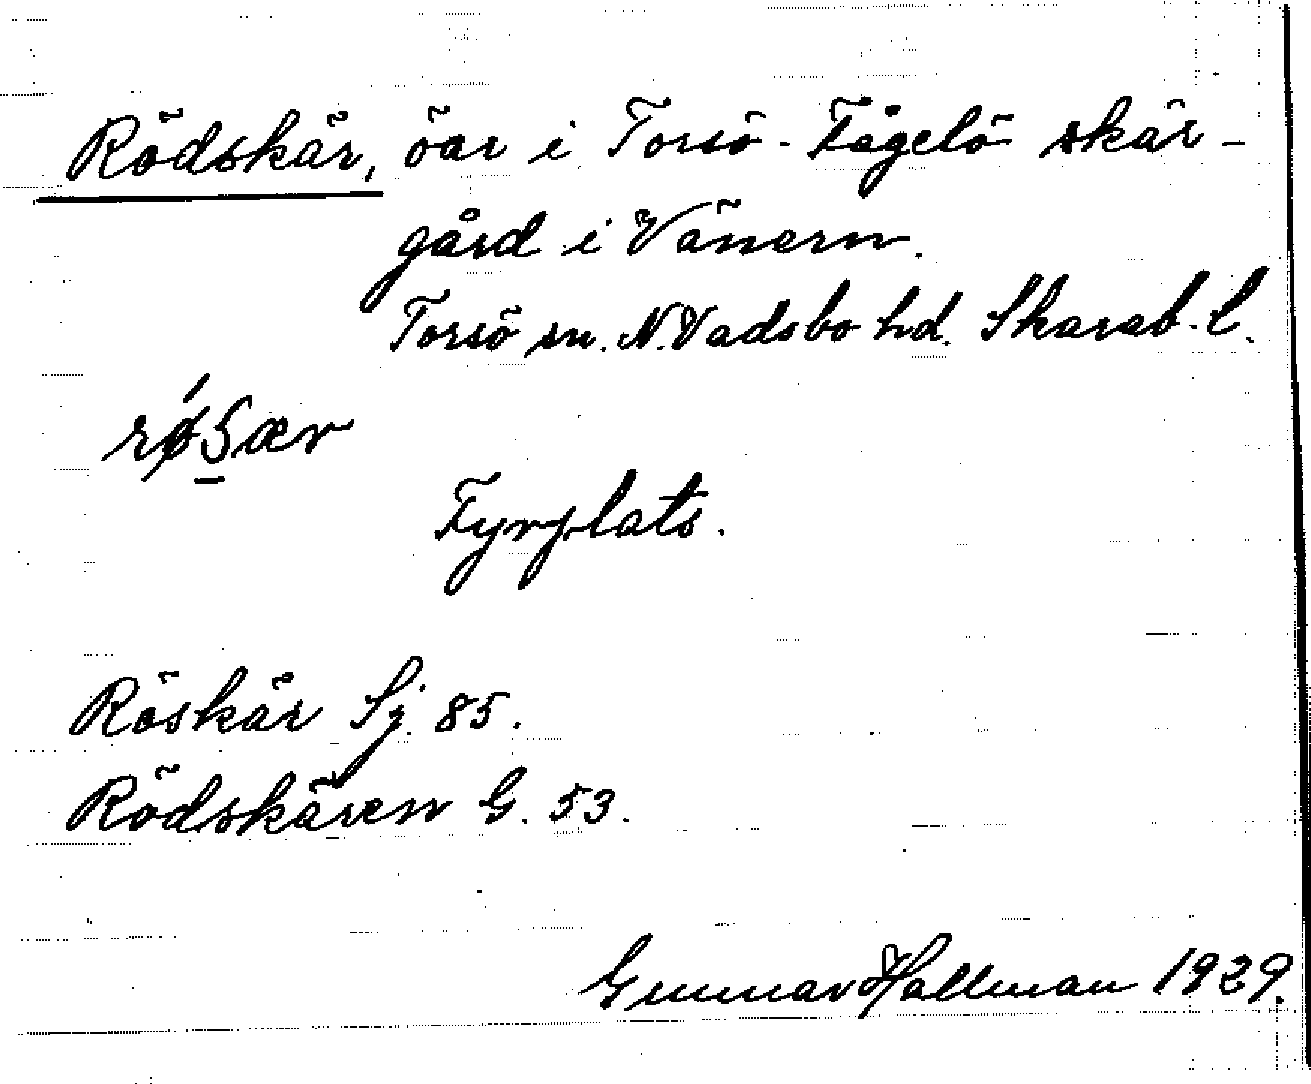 Rödskär, öar i Torsö-Fågelö skär-
gård i Vänern.
Torsö sn. N. Vadsbo hd. Skarab. l.
Fyrplats.
Röskär Sj. 85.
Rödskären G. 53.
Gunnar Hallman 1929.